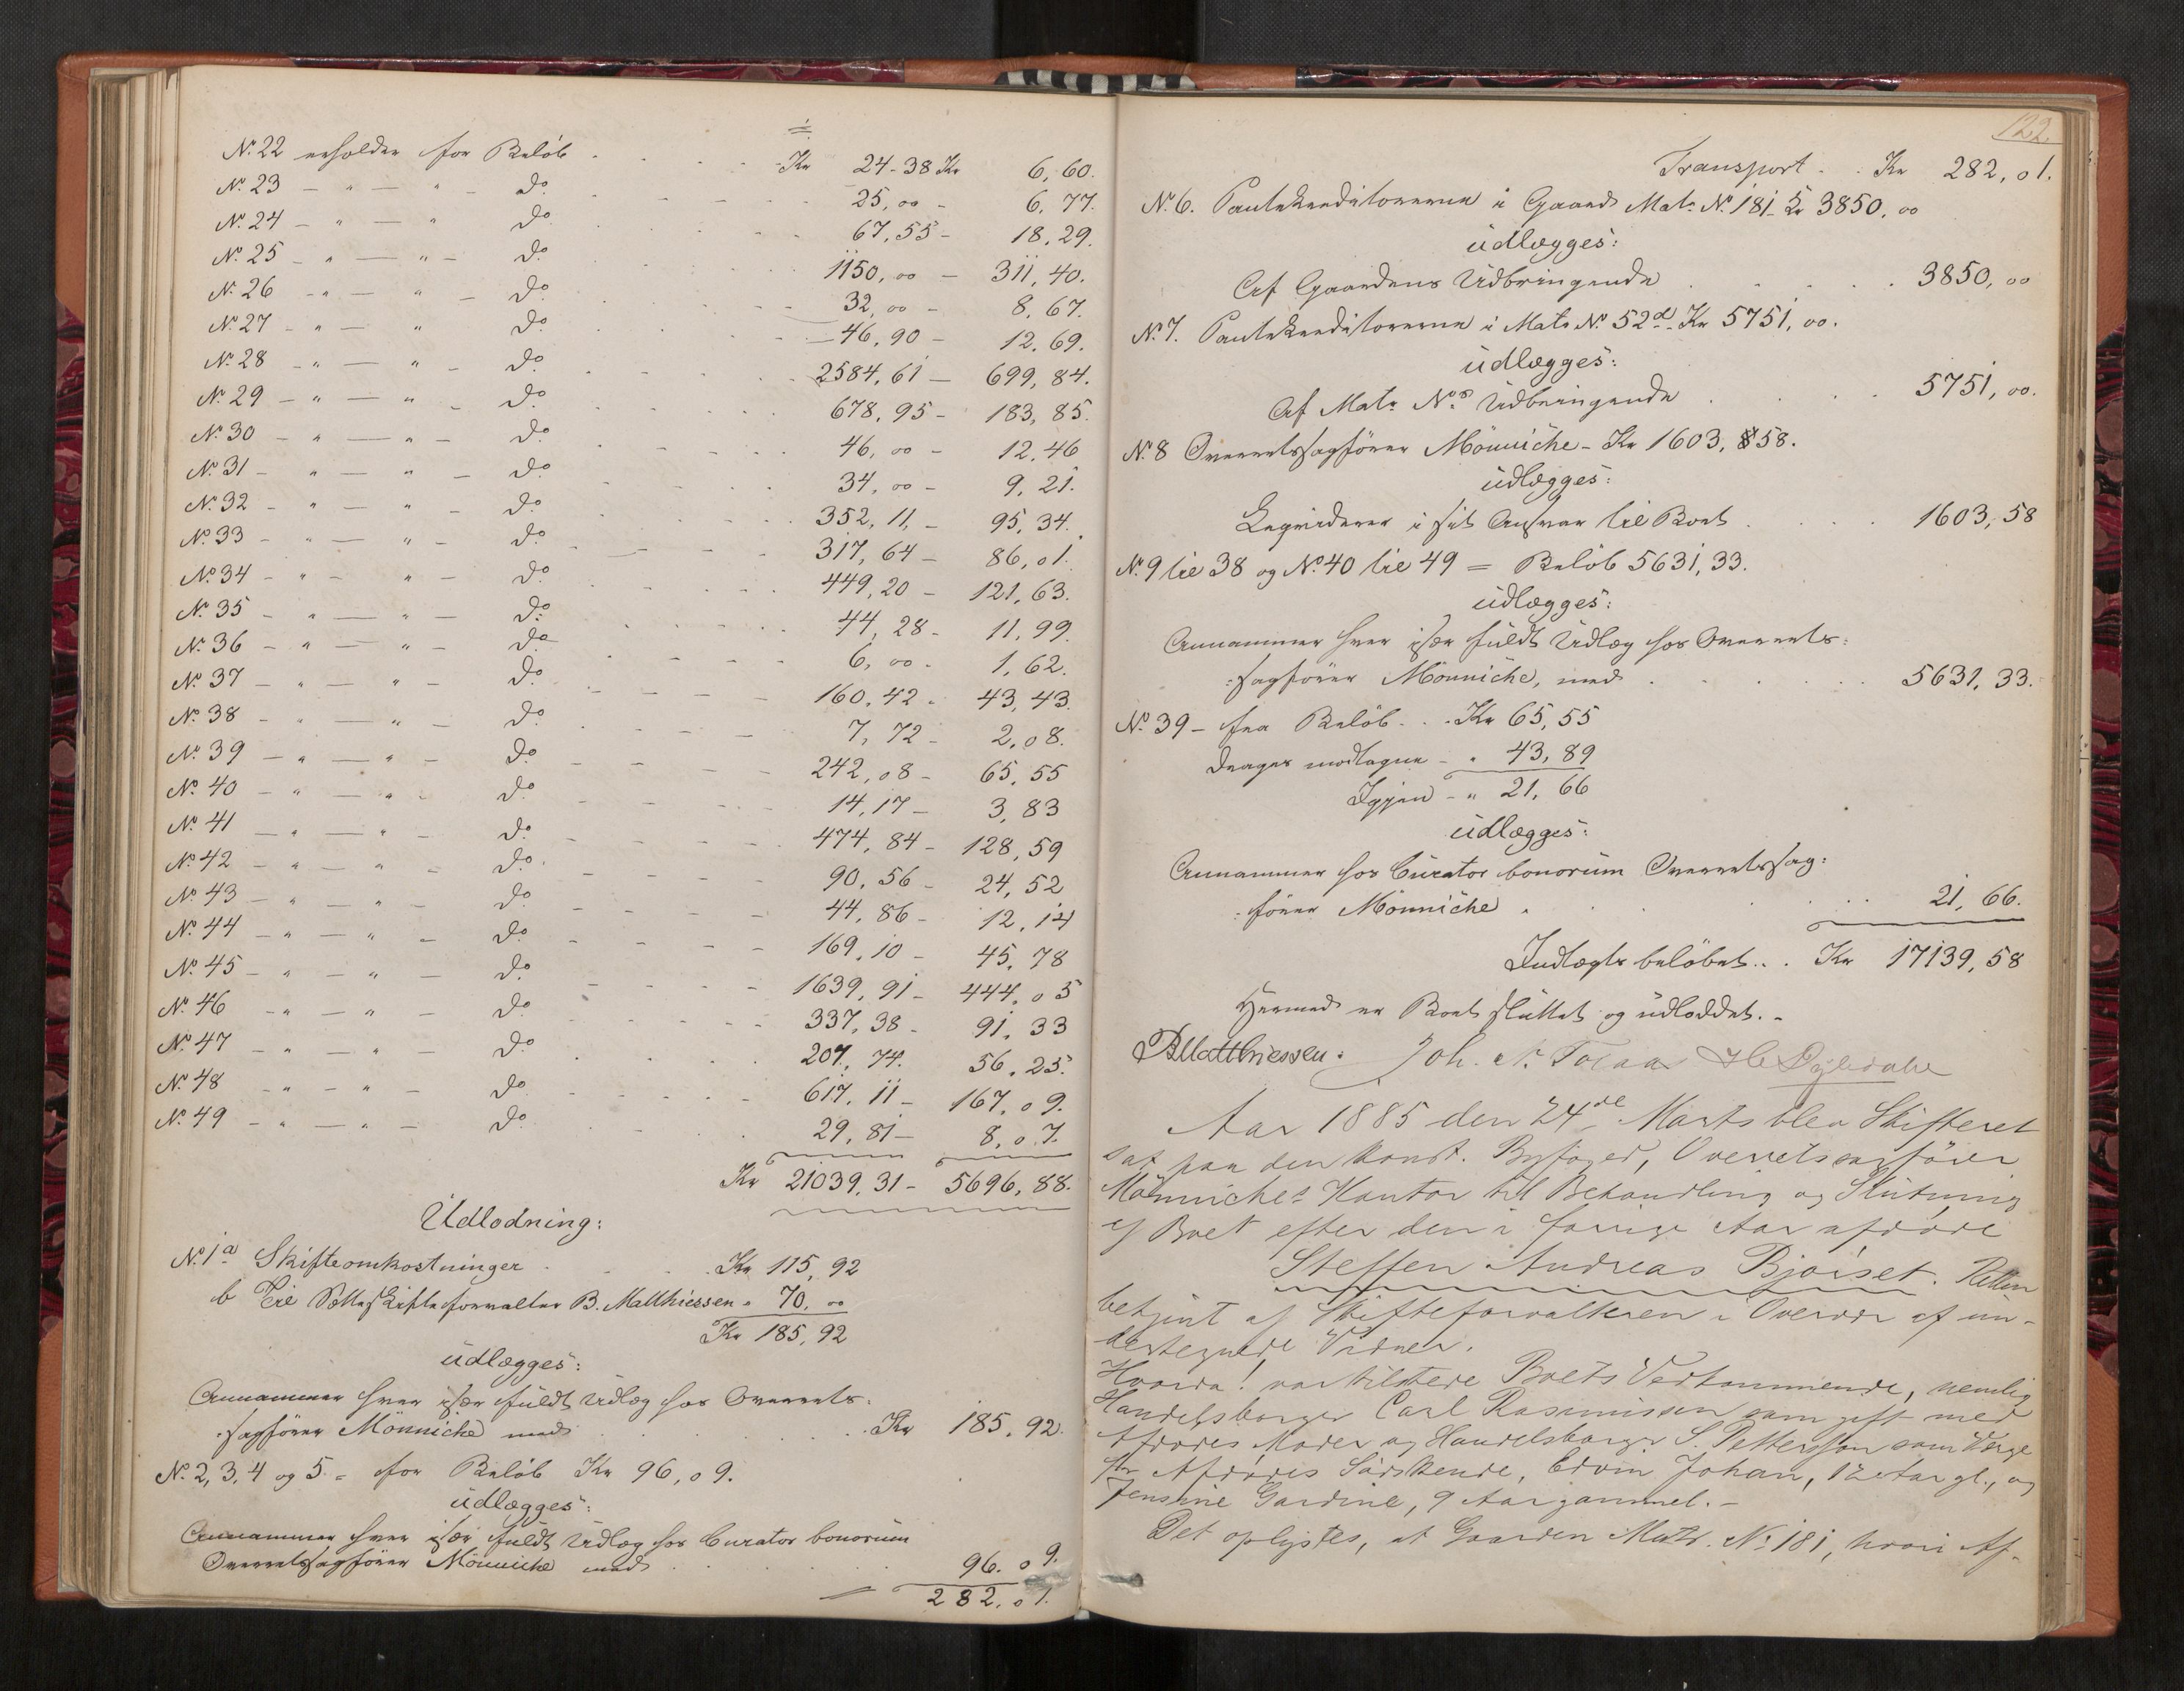 N.º 22 erholder for Beløb . . . . Kr 24-38 Kr 6,60.
N.º 23 — " — " — do. . . . 25,00 - 6,77.
N.º 24 — " — " do. . . . 67,55 - 18,29.
N.º 25 — " — " — do. . . . 1150,00 — 311,40.
N.º 26 — " — " — do. . . . 32,00 - 8,67.
N.º 27 — " — " do. . . . 46,90 - 12,69.
N.º 28 — " — " — do. . . . 2584,61 — 699,84.
N.º 29 — " — " — do. . . . 678,95 - 183,85.
N.º 30 — " — " — do. . . . 46,00 - 12,46
N.º 31 — " — " — do. . . . 34,00 - 9,21.
N.º 32 — " — " — do. . . . 352,11, - 95,34.
N.º 33 — " — " — do. . . . 317,64 - 86,01.
N.º 34 — " — " — do. . . . 449,20 - 121,63.
N.º 35 — " — " — do. . . . 44,28 - 11,99.
N.º 36 — " — " — do. . . . 6,00 - 1,62.
N.º 37 — " — " — do. . . . 160,42 - 43,43.
N.º 38 — " — " — do. . . . 7,72 - 2,08.
N.º 39 — " — " — do. . . . 242,08 - 65,55
N.º 40 — " — " — do. . . . 14,17 - 3,83
N.º 41 — " — " — do. . . . 474,84 - 128,59
N.º 42 — " — " — do. . . . 90,56 - 24,52
N.º 43 — " — " — do. . . . 44,86 - 12,14
N.º 44 — " — " — do. . . . 169,10 - 45,78
N.º 45 — " — " — do. . . . 1639,91 - 444,05
N.º 46 — " — " — do. . . . 337,38 - 91,33
N.º 47 — " — " — do. . . . 207,74. 56,25.
N.º 48 — " — " — do. . . . 617,11 - 167,09.
N.º 49 — " — " — do. . . . 29,81 - 8,07.
Kr 21039,31 - 5696,88.
Udlodning:
N.º 1 a Skifteomkostninger . . . Kr 115,92
b Til Sætteskifteforvalter B. Matthiessen " 70,00
Kr 185,92
udlægges:
Annammer hver især fuldt Udlæg hos Overrets=
=sagfører Mønniche med . . . Kr 185,92.
N.º 2, 3, 4 og 5 = for Beløb Kr 96,09.
udlægges:
Annammer hver især fuldt Udlæg hos Curator bonorum
Overretssagfører Mønniche med . . . 96,09.
282,01.
122.
Transport . . Kr 282,01.
N.º 6. Pantekreditorerne i Gaard Matr N.º 181 - Kr 3850,00
udlægges:
Af Gaardens Udbringende . . . 3850,00
N.º 7. Pantekreditorerne i Matr N.º 52d - Kr 5751,00.
udlægges:
Af Matr N.os Udbringende . . . 5751,00.
N.º 8 Overretssagfører Mønniche - Kr 1603,58.
udlægges:
Liqviderer i sit Ansvar til Boet . . . 1603,58
N.º 9 til 38 og N.º 40 til 49 = Beløb 5631,33.
udlægges:
Annammer hver især fuldt Udlæg hos Overrets=
=sagfører Mønniche, med . . . 5631,33.
N.º 39 - fra Beløb . . . Kr 65,55
drages modtagne - " 43,89
Igjen - " 21,66
udlægges:
Annammer hos Curator bonorum Overretssag=
=fører Mønniche . . . 21,66.
Indlagte beløbet . . . Kr 17139,58
Hermed er Boet sluttet og udloddet. -
BMatthiessen. Joh. N.
Aar 1885 den 24de Marts blev Skifteret
sat paa den konst. Byfoged, Overretssagfører
Mønniches Kontor til Behandling og Slutning
af Boet efter den i forrige Aar afdøde
Steffen Andreas Bjørset. Retten
betjent af Skifteforvalteren i Overvær af un-
dertegnede Vidner.
Hvorda! var tilstede Boets Vedkommende, nemlig
Handelsborger Carl Rasmussen som gift med
Afdødes Moder og Handelsborger S. Pettersson som Værge
for Afdødes Sødskende, Edvin Johan, 12 Aar gl., og
Jensine Gardine, 9 Aar gammel. -
Det oplystes, at Gaarden Matr. N.º 181, hvori Af-